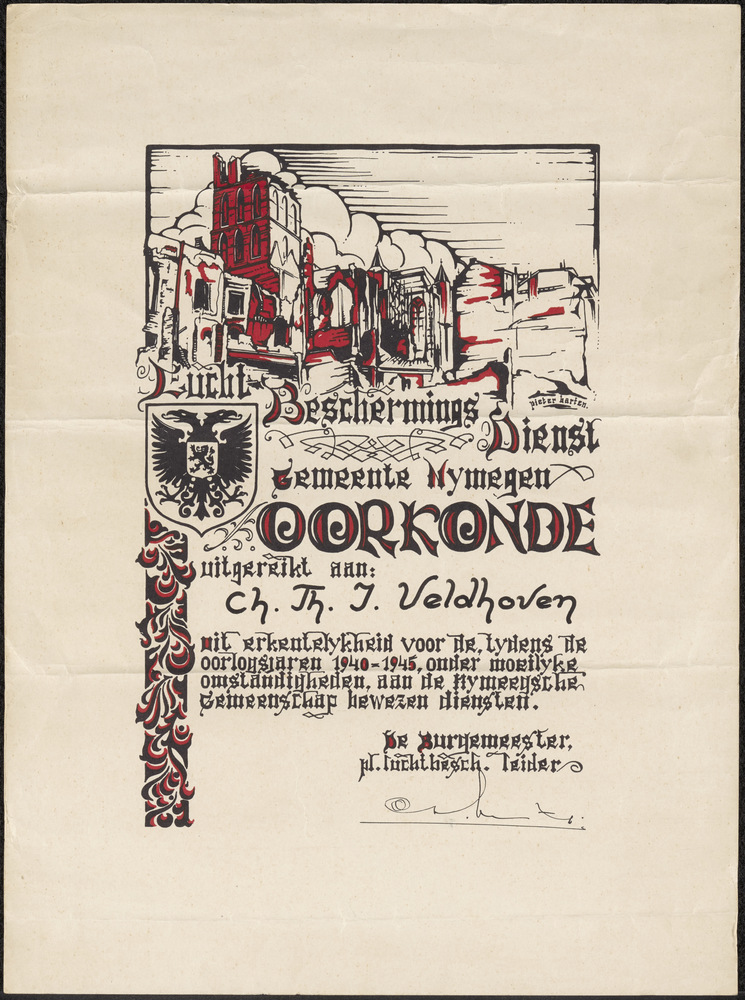 pieter harten.
Lucht-
Beschermings
Dienst
Gemeente Nymegen
OORKONDE
uitgereikt aan:
Ch. Th. J. Veldhoven
uit erkentelykheid voor de, tydens de
oorlogsjaren 1940-1945, onder moeilyke
omstandigheden, aan de Nymeegsche
Gemeenschap bewezen diensten.
De Burgemeester,
pl. luchtbesch. leider